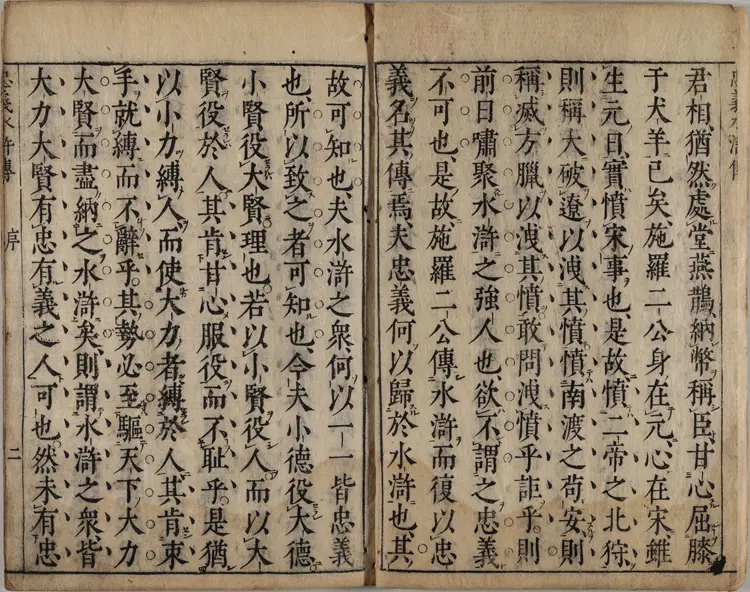 忠義水滸傳
君相猶然處堂燕鵲納幣稱臣甘心屈膝
于犬羊已矣施羅二公身在元心在宋雖
生元日實憤宋事也是故憤二帝之北狩
則稱大破遼以洩其憤憤南渡之苟安則
稱滅方臘以洩其憤敢問洩憤乎詎乎則
前日嘯聚水滸之強人也欲不謂之忠義
不可也是故施羅二公傳水滸而復以忠
義名其傳焉夫忠義何以歸於水滸也其
故可知也夫水滸之衆何以一一皆忠義
也所以致之者可知也今夫小德役大德
小賢役大賢理也若以小賢役人而以大
賢役於人其肯甘心服役而不恥乎是猶
以小力縛人而使大力者縛於人其肯束
手就縛而不辭乎其勢必至驅天下大力
大賢而盡納之水滸矣則謂水滸之衆皆
大力大賢有忠有義之人可也然未有忠
忠義水滸傳 序 二